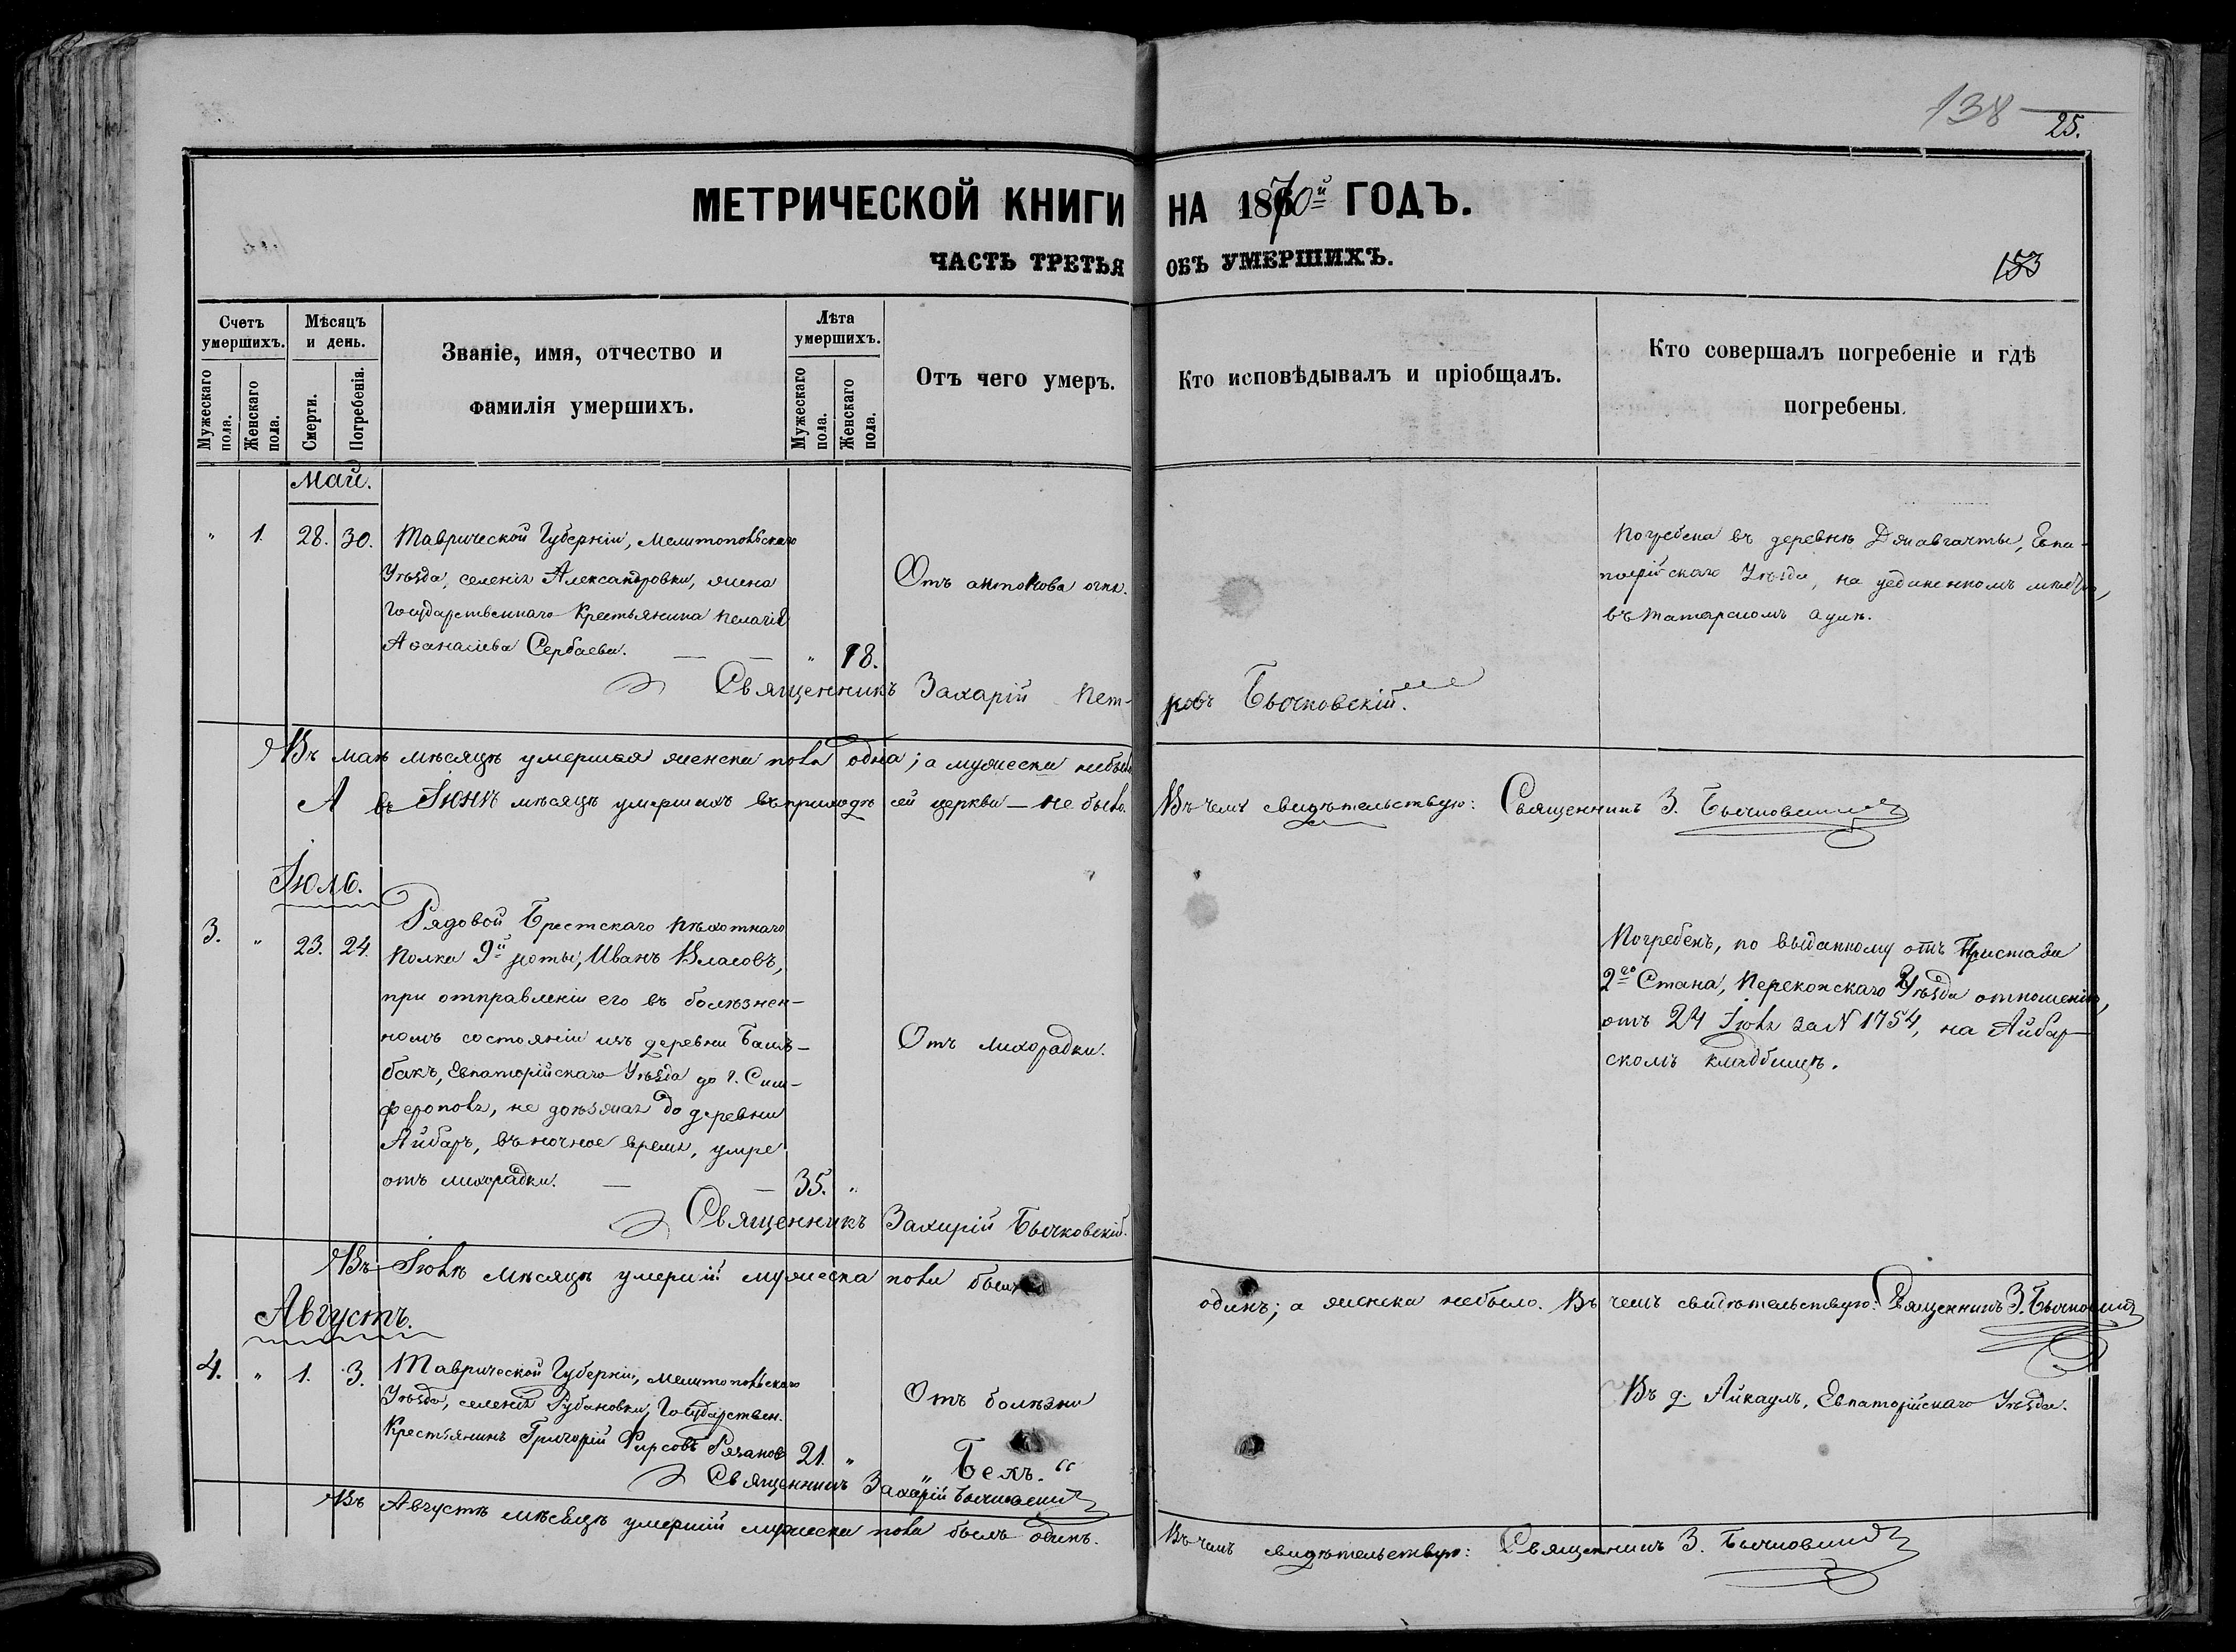 138
25.
МЕТРИЧЕСКОЙ КНИГИ НА 1870й ГОДЪ.
ЧАСТЬ ТРЕТЬЯ ОБЪ УМЕРШИХЪ.
153
Счетъ умершихъ.
Мужескаго пола.
Женскаго пола.
Мѣсяцъ и день.
Смерти.
Погребенія.
Званіе, имя, отчество и
фамилія умершихъ.
Лѣта умершихъ.
Мужескаго пола.
Женскаго пола.
Отъ чего умеръ.
Кто исповѣдывалъ и пріобщалъ.
Кто совершалъ погребеніе и гдѣ
погребены.
Май.
" 1. 28. 30. Таврической Губерніи, Мелитопольскаго
Уѣзда, селенія Александровки, жена
Государственнаго Крестьянина Пелагія
Аѳанасіева Сербаева. — — " 18.
Отъ антонова огня.
Погребена въ деревнѣ Джавгачты, Евпа-
торійскаго Уѣзда, на уединенномъ мѣстѣ,
въ татарскомъ аулѣ.
Священникъ Захарій Пет- ровъ Бычковскій.
Въ маѣ мѣсяцѣ умершая женска пола одна; а мужеска небыло
А въ Іюнѣ мѣсяцѣ умершихъ въ приходѣ сей церкви — не было. Въ чемъ свидѣтельствую: Священникъ З. Бычковскій
Іюль.
3. " 23. 24. Рядовой Брестскаго пѣхотнаго
полка 9й роты, Иванъ Власовъ,
при отправленіи его въ болѣзнен-
номъ состояніи изъ деревни Башъ-
бакъ, Евпаторійскаго Уѣзда до г. Сим-
ферополя, не доѣзжая до деревни
Айбаръ, въ ночное время, умре
отъ лихорадки. — — 35. "
Отъ лихорадки.
Погребенъ, по выданному отъ Пристава
2го Стана, Перекопскаго Уѣзда отношенію,
отъ 24 Іюля за N 1754, на Айбар-
скомъ кладбищѣ.
Священникъ Захарій Бычковскій.
Въ Іюлѣ мѣсяцѣ умершій мужеска пола былъ одинъ; а женска небыло. Въ чемъ свидѣтельствую: Священникъ З. Бычковскій
Августъ.
4. " 1. 3. Таврической Губерніи, Мелитопольскаго
Уѣзда, селенія Рубановки, Государствен.
Крестьянинъ Григорій Фирсовъ Рязановъ 21. "
Отъ болѣзни
Въ д. Айкаулъ, Евпаторійскаго Уѣзда.
Священникъ Захарій Бычковскій
Въ Августѣ мѣсяцѣ умершій мужеска пола былъ одинъ. Въ чемъ свидѣтельствую: Священникъ З. Бычковскій